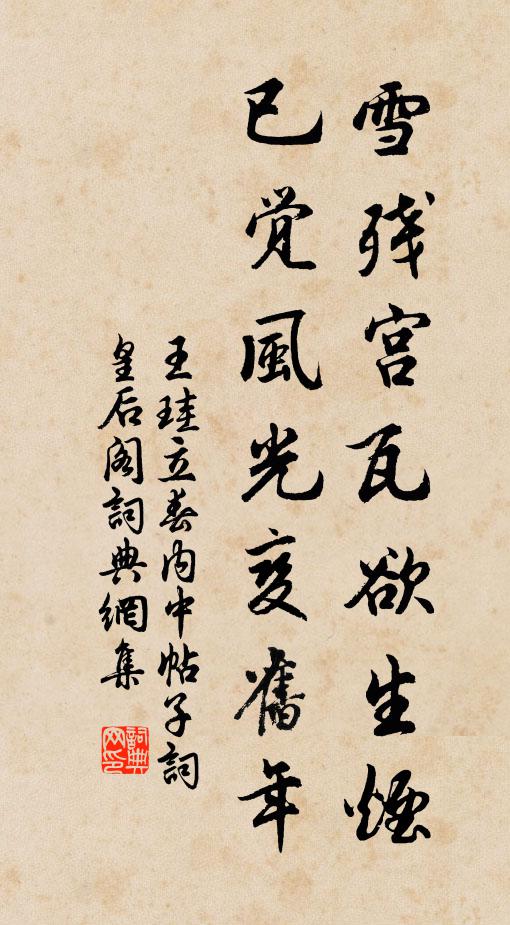 雪残宫瓦欲生煙
已覺風光变舊年
王珪立春内中帖子詞
皇后阁詞典網集
詞典网印